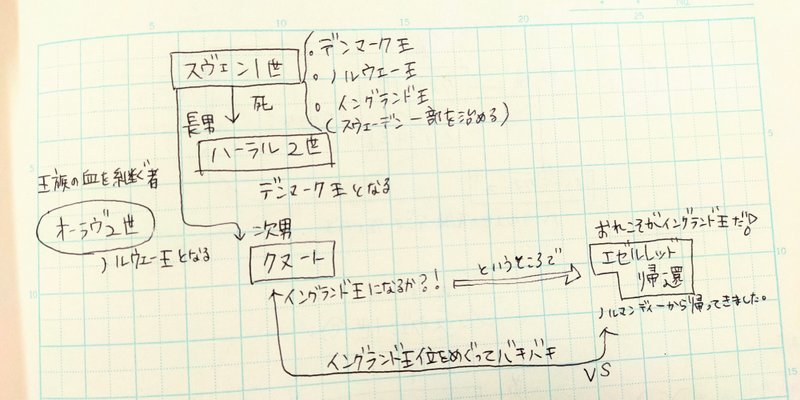 スヴェン1世
。デンマーク王
。ノルウェー王
。イングランド王
(スウェーデン一部を治める)
死
長男
ハーラル2世
デンマーク王となる
王族の血を継ぐ者
オーラヴ2世
ノルウェー王となる
次男
クヌート
イングランド王になるか?!
というところで
おれこそがイングランド王だ!
エゼルレッド
帰還
ノルマンディーから帰ってきました。
イングランド王位をめぐってバチバチ
VS
5
10
15
20
25
No.
5
10
10
15